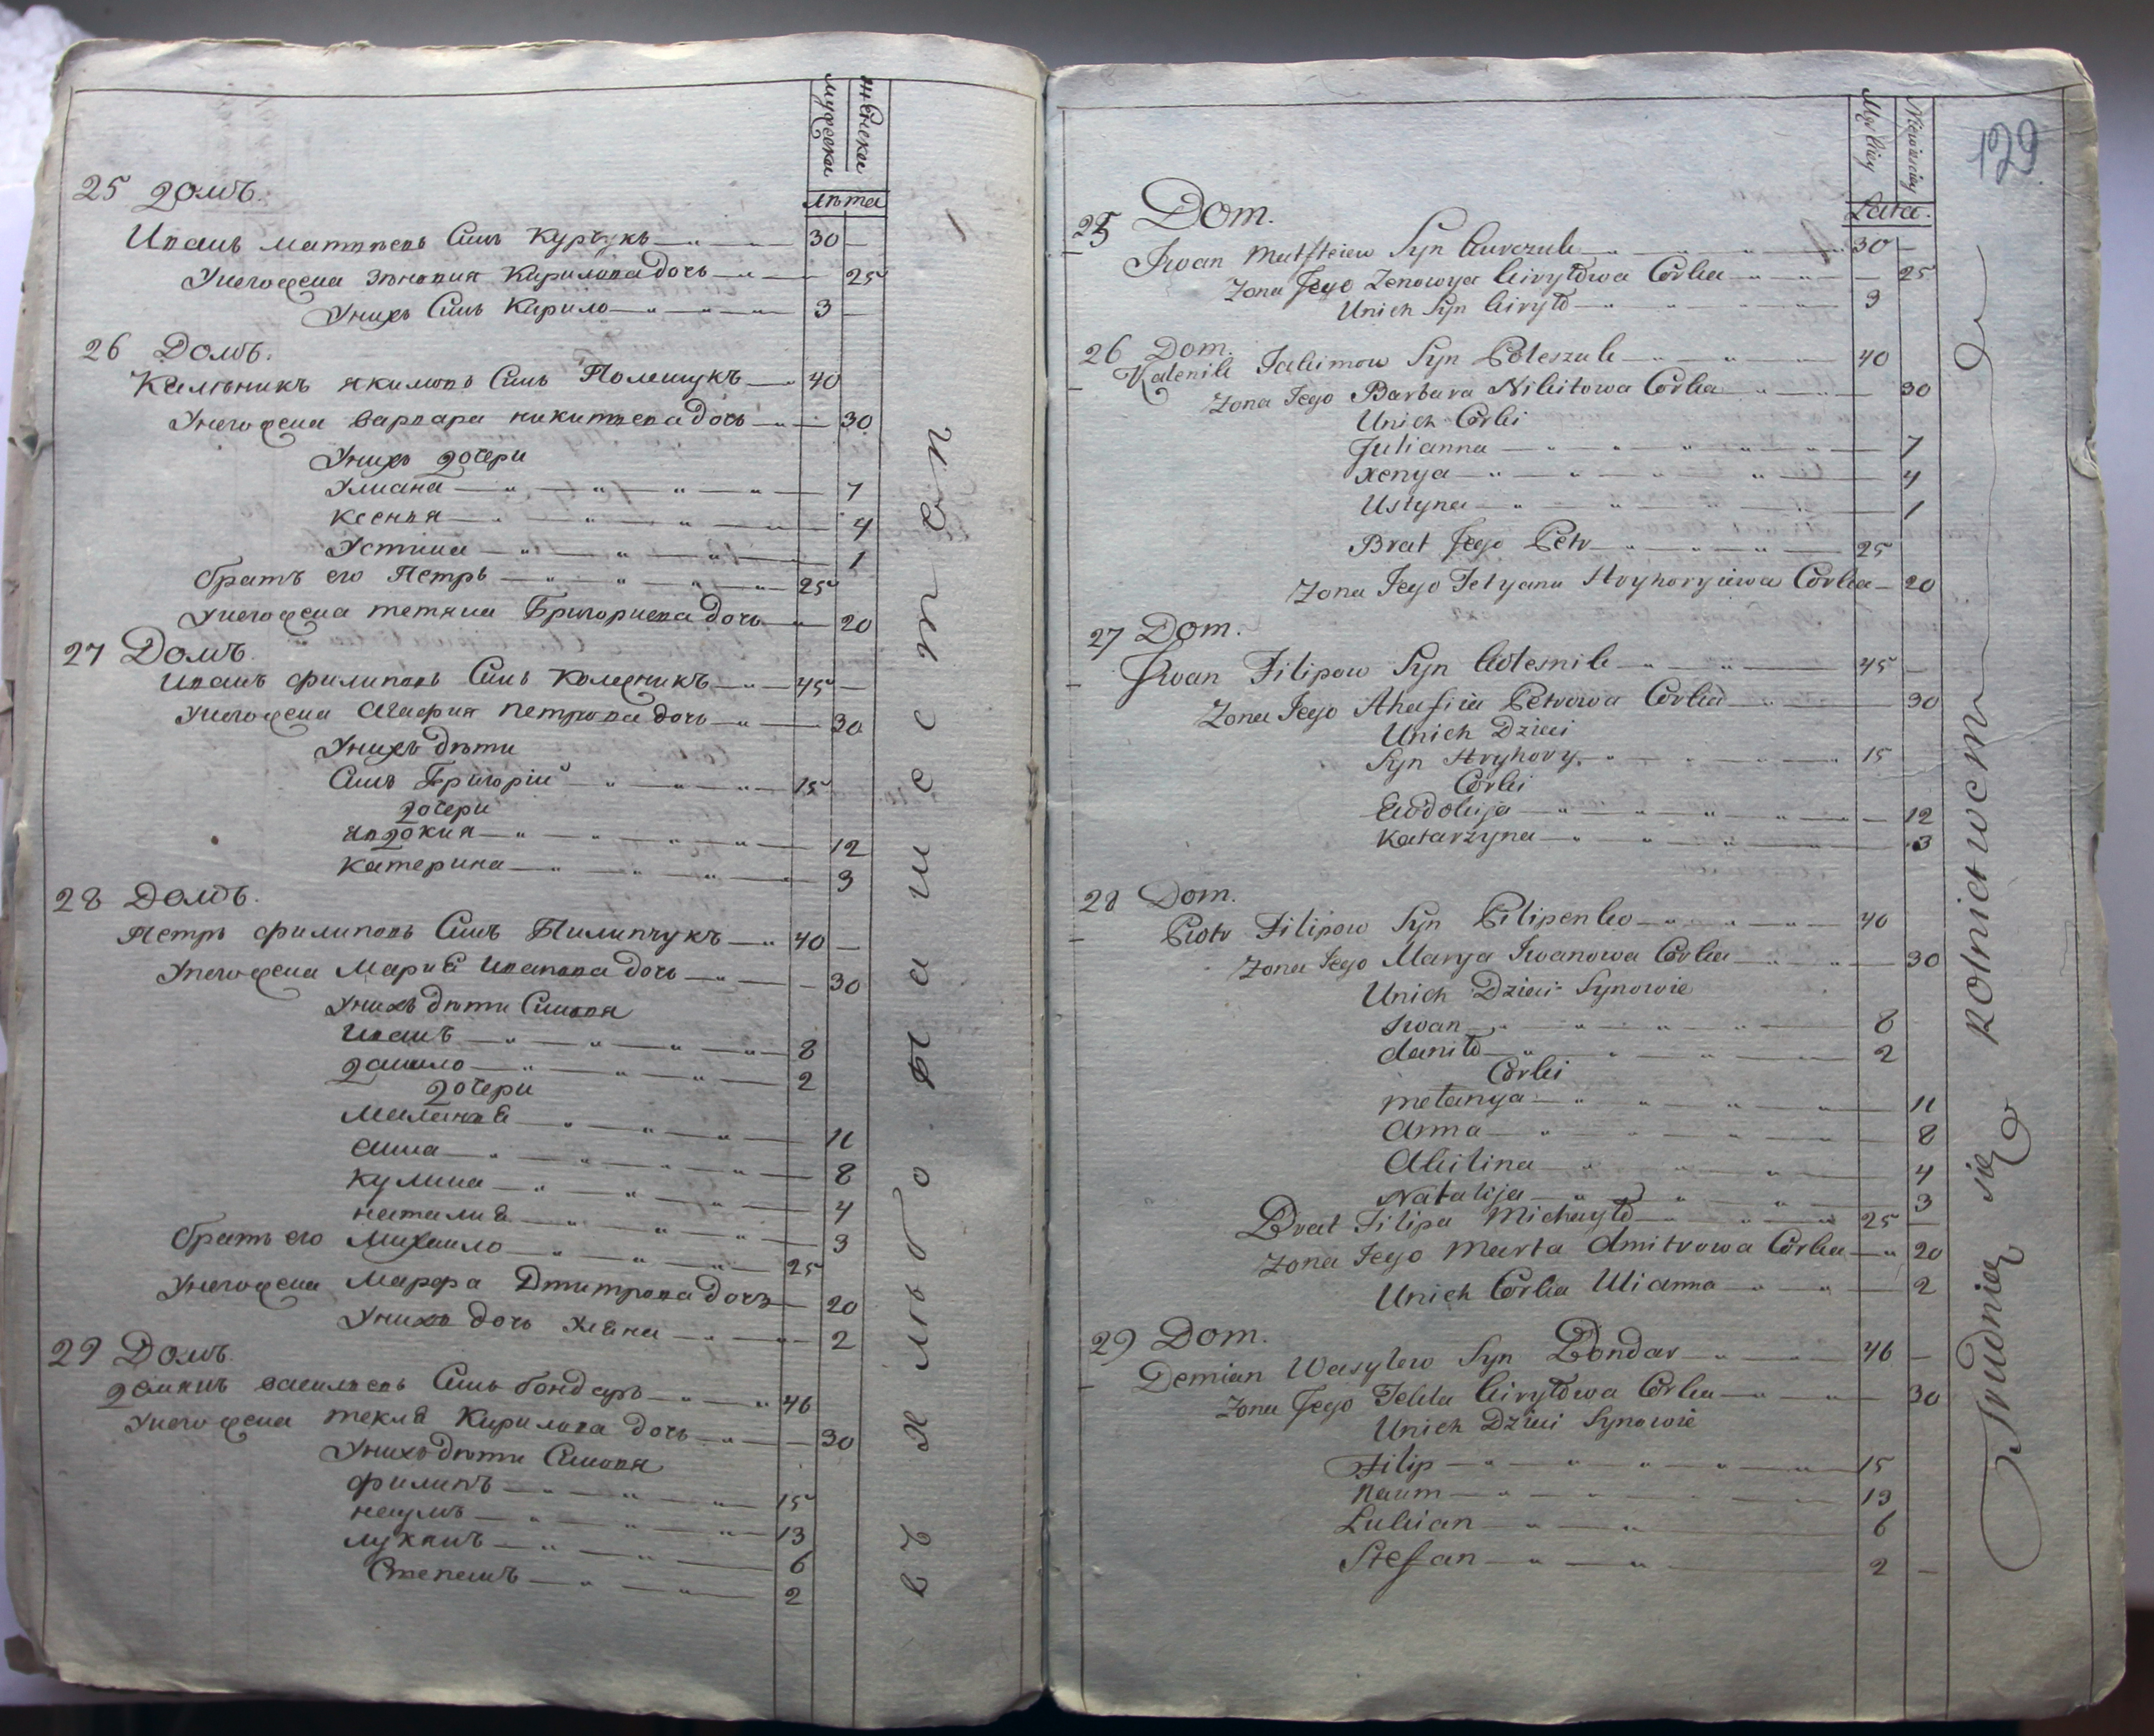 мужеска
женска
лѣта
25 Домъ.
Иванъ Матвѣевъ Сынъ Курчукъ 30
Унего жена Зѣновия Кирилова Дочь 25
Унихъ Сынъ Кирило 3
26 Домъ.
Калѣникъ Якимовъ Сынъ Полещукъ 40
Унего жена Варвара никитѣева Дочь 30
Унихъ дочери
Улиана 7
Ксенъя 4
Устина 1
братъ его Петръ 25
Унего жена тетяна Григориева Дочь 20
27 Домъ.
Иванъ филиповъ Сынъ Колесникъ 45
Унего жена Агафия петрова дочь 30
Унихъ дѣти
Сынъ Григорій 15
дочери
Явдокия 12
Катерина 3
28 Домъ.
Петръ филиповъ Сынъ Пилипчукъ 40
Унего жена Мариѣ Иванова дочь 30
Унихъ дѣти Синовя
Иванъ 8
данило 2
дочери
Маланъѣ 11
анна 8
Кулина 4
наталиѣ 3
братъ его Михаило 25
Унего жена Марфа Дмитрова дочъ 20
Унихъ дочь Уляна 2
29 Домъ.
демянъ василѣевъ Сынъ бондарь 46
Унего жена теклѣ Кирилова дочь 30
Унихъ дѣти Синовя
филипъ 15
наумъ 13
лукянъ 6
Степанъ 2
въ хлѣбопашествѣ
129
Męskiey
Niewieściey
Lata.
25 Dom.
Iwan Matfieiew Syn Kurczuk 30
Zona Jego Zenowya Kiryłowa Corka 25
Unich Syn Kiryło 3
26 Dom.
Kalenik Jakimow Syn Poleszuk 40
Zona Jego Barbara Nikitowa Corka 30
Unich Corki
Julianna 7
Xenya 4
Ustyna 1
Brat Jego Petr 25
Zona Jego Tetyana Hryhoryiewa Corka 20
27 Dom.
Iwan Filipow Syn Kolesnik 45
Zona Jego Ahafiia Petrowa Corka 30
Unich Dzieci
Syn Hryhory 15
Corki
Ewdokija 12
Katarzyna 3
28 Dom.
Piotr Filipow Syn Pilipenko 40
Zona Jego Marya Iwanowa Corka 30
Unich Dzieci Synowie
Iwan 8
daniło 2
Corki
mełanya 11
Anna 8
Akilina 4
Natalija 3
Brat Filipa Michayło 25
Zona Jego Marta dmitrowa Corka 20
Unich Corka Ulianna 2
29 Dom.
Demian Wasylew Syn Bondar 46
Zona Jego Tekla Kiryłowa Corka 30
Unich Dzieci Synowie
Filip 15
Naum 13
Lukian 6
Stefan 2
Trudnią się Rolnictwem